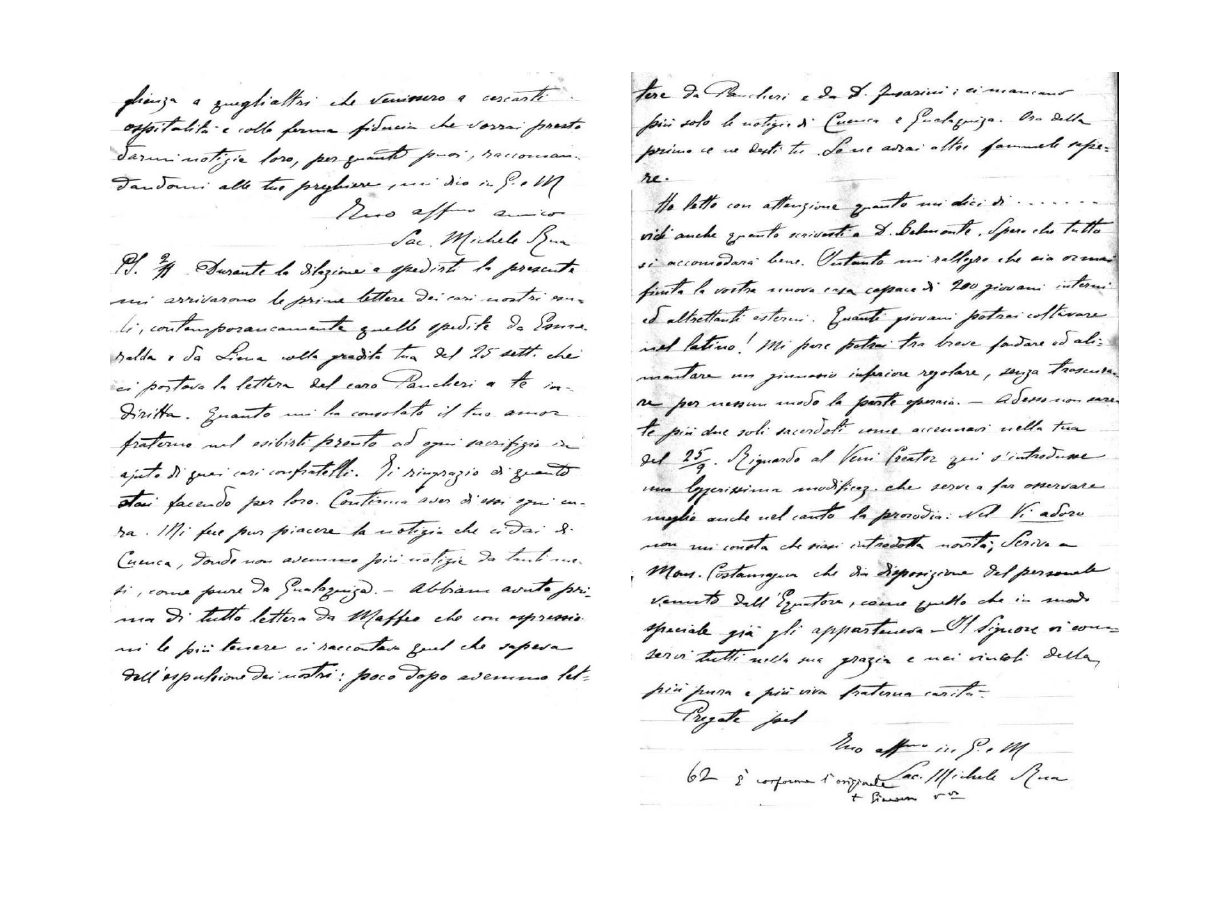 glienza a quegli altri che venissero a cercarti
ospitalità e colla ferma fiducia che vorrai presto
darmi notizia loro, per quanto puoi, raccoman-
dandomi alle tue preghiere, mi dico in G. e M
Tuo aff.mo amico
Sac. Michele Rua
P.S. 2/11 Durante la dilazione a spedirti la presente
mi arrivarono le prime lettere dei cari nostri esu-
li, contemporaneamente quelle spedite da Esme-
ralda e da Lima colla gradita tua del 25 sett. che
ci portava la lettera del caro Pancheri a te in-
diritta. Quanto mi ha consolato il tuo amor
fraterno nel esibirti pronto ad ogni sacrifizio in
ajuto di quei cari confratelli. Ti ringrazio di quanto
stai facendo per loro. Continua aver di essi ogni cu-
ra. Mi fece pur piacere la notizia che ci dai di
Cuenca, donde non avemmo più notizie da tanti me-
si, come pure da Gualaquiza. - Abbiam avuto pri-
ma di tutto lettera da Maffeo che con espressio-
ni le più tenere ci raccontava quel che sapeva
dell'espulsione dei nostri; poco dopo avemmo let-
tere da Pancheri e da D. Fusarini; ci mancano
più solo le notizie di Cuenca e Gualaquiza. Ora della
prima ce ne desti tu. Se ne avrai altre fammele sape-
re.
Ho letto con attenzione quanto mi dici di .......
vidi anche quanto scrivesti a D. Belmonte. Spero che tutto
si accomodarà bene. Intanto mi rallegro che sia ormai
finita la vostra nuova casa capace di 200 giovani interni
ed altrettanti esterni. Quanti giovani potrai coltivare
nel latino! Mi pare potrai tra breve fondare ed ali-
mentare un ginnasio inferiore regolare, senza trascura-
re per nessun modo la parte operaia. - Adesso non sare-
te più due soli sacerdoti come accennavi nella tua
del 25/9. Riguardo al Veni Creator qui s'introdusse
una leggerissima modificaz. che serve a far osservare
meglio anche nel canto la prosodia. Nel Vi adoro
non mi consta che siasi introdotta novità; Scrivo a
Mons. Costamagna che dia disposizione del personale
venuto dall'Equatore, come quello che in modo
speciale già gli apparteneva - Il Signore vi con-
servi tutti nella sua grazia e nei vincoli della
più pura e più viva fraterna carità -
Pregate pel
Tuo aff.mo in G. e M
Sac. Michele Rua
62 È conforme l'originale